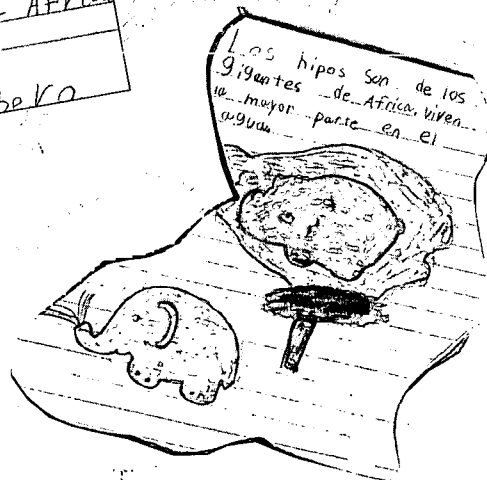 Los hipos son de los
gigantes de Africa, viven
la mayor parte en el
agua.